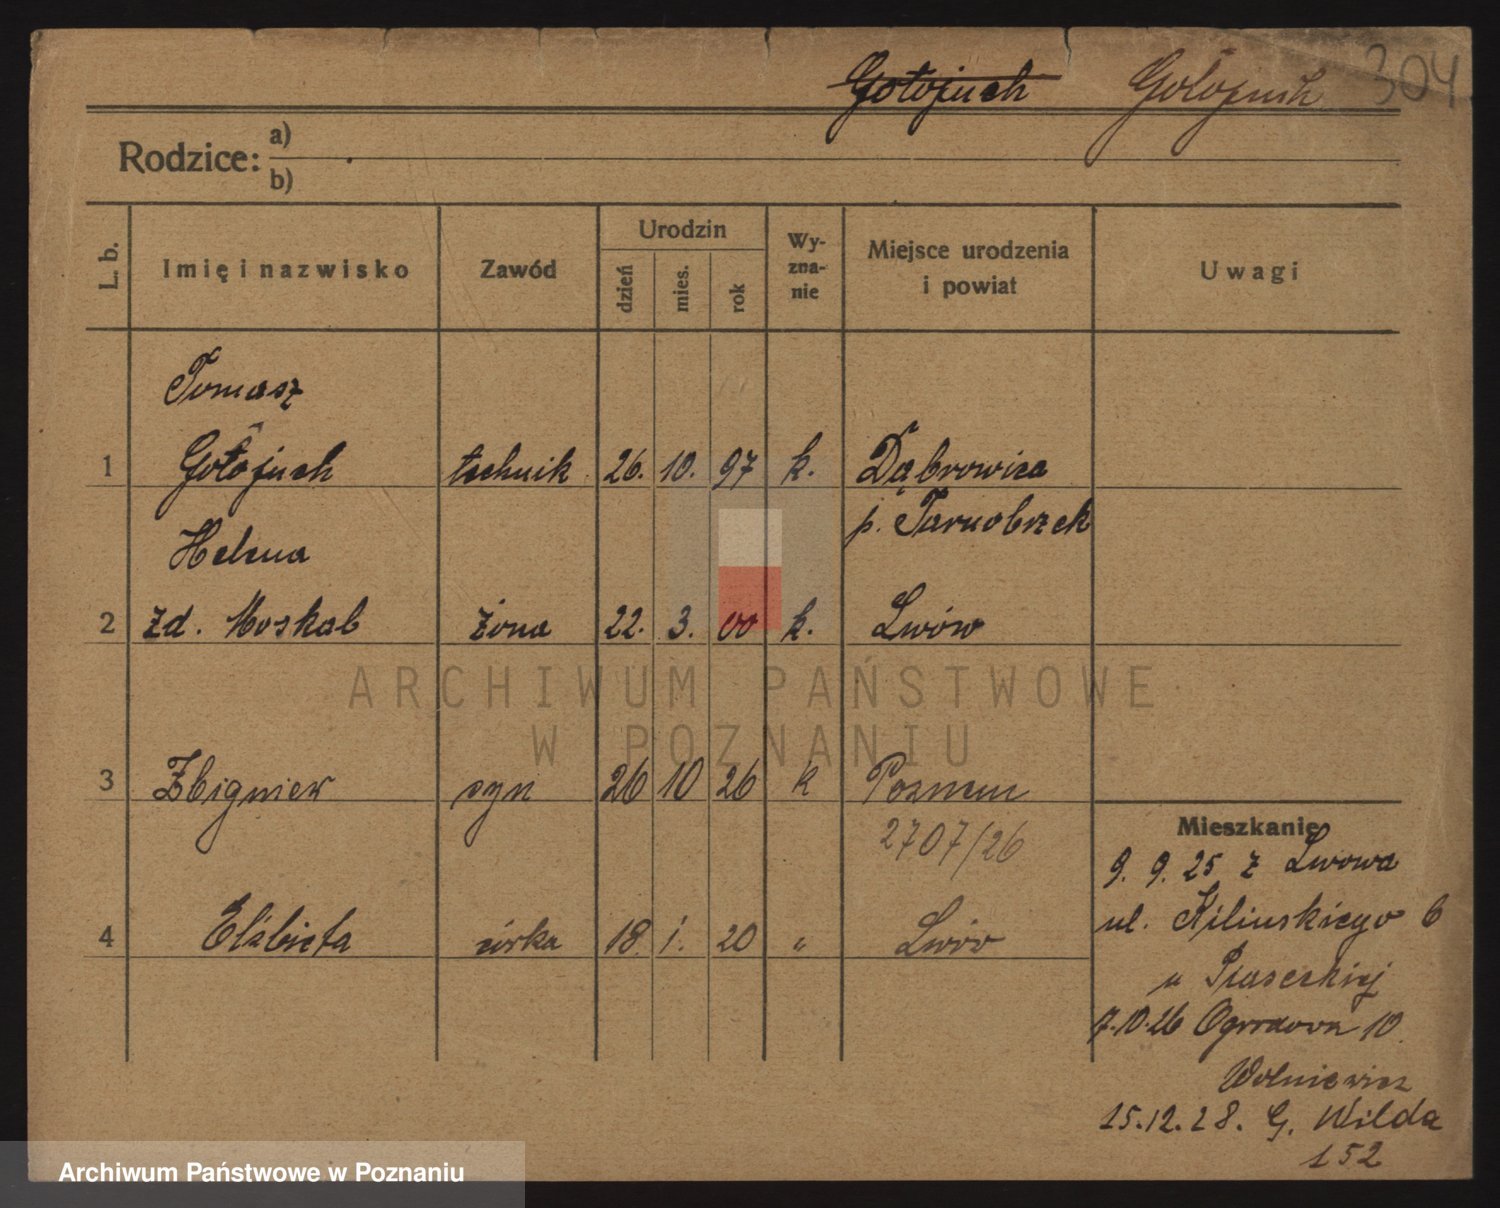 Gołojuch Gołojuch 304
Rodzice: a)
b)
L. b. Imię i nazwisko Zawód Urodzin dzień mies. rok Wy-zna-nie Miejsce urodzenia i powiat Uwagi
Tomasz
1 Gołojuch technik 26. 10. 97 k. Dąbrowica
p. Tarnobrzek
Helena
2 zd. Moskab żona 22. 3. 00 k. Lwów
ARCHIWUM PAŃSTWOWE
W POZNANIU
3 Zbigniew syn 26 10 26 k Poznan
2707/26
Mieszkanie
9. 9. 25 z Lwowa
ul. Kilińskiego 6
4 Elżbieta córka 18. 1. 20 „ Lwów
u Piaseckiej
7.10.26 Ogrodowa 10.
Wolniewicz
15.12.28. G. Wilda
152
Archiwum Państwowe w Poznaniu